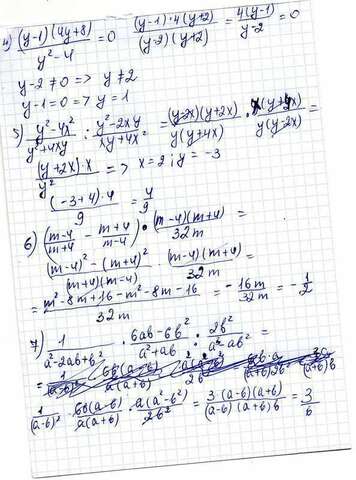 4) (y-1)(4y+8)/(y²-4) = 0 (y-1)·4(y+2)/((y-2)(y+2)) = 4(y-1)/(y-2) = 0
y-2 ≠ 0 => y ≠ 2
y-1 = 0 => y = 1
5) (y²-4x²)/(y²+4xy) : (y²-2xy)/(xy+4x²) = (y-2x)(y+2x)/(y(y+4x)) · x(y+4x)/(y(y-2x)) =
(y+2x)·x/y² => x = 2; y = -3
(-3+4)·4/9 = 4/9
6) ((m-4)/(m+4) - (m+4)/(m-4)) · (m-4)(m+4)/32m =
((m-4)²-(m+4)²)/((m+4)(m-4)) (m-4)(m+4)/32m =
= (m²-8m+16-m²-8m-16)/32m = -16m/32m = -1/2
7) 1/(a²-2ab+b²) · (6ab-6b²)/(a²+ab) : 2b²/(a³-ab²) =
1/(a-b)² · 6b(a-b)/(a(a+b)) · a(a²-b²)/2b² = 3(a-b)(a+b)/((a-b)(a+b)b) = 3/b